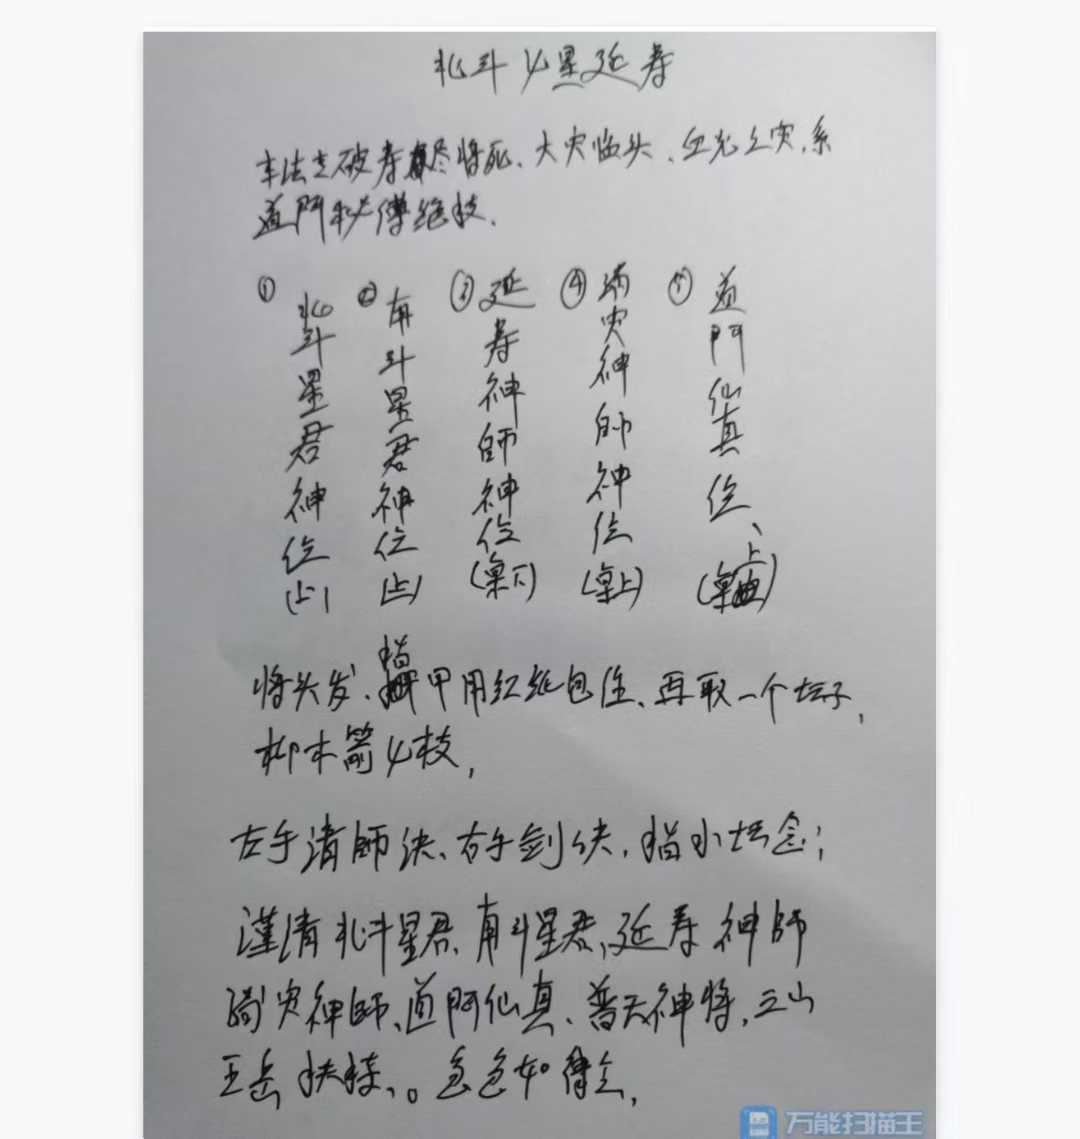 北斗七星延寿
本法主破寿尽将死、大灾临头、血光之灾,系
道門秘傳绝技.
① 北斗星君神位(上)
② 南斗星君神位(上)
③ 延寿神師神位(桌下)
④ 消灾神師神位(桌上)
⑤ 道門仙真位、(桌上)
将头发、指甲用红纸包住、再取一个坛子,
柳木箭七枝,
左手请師决、右手剑决,指水坛念;
谨请北斗星君、南斗星君、延寿神師
消灾神師、道門仙真、普天神将,三山
五岳扶持、。急急如律令,
万能扫描王